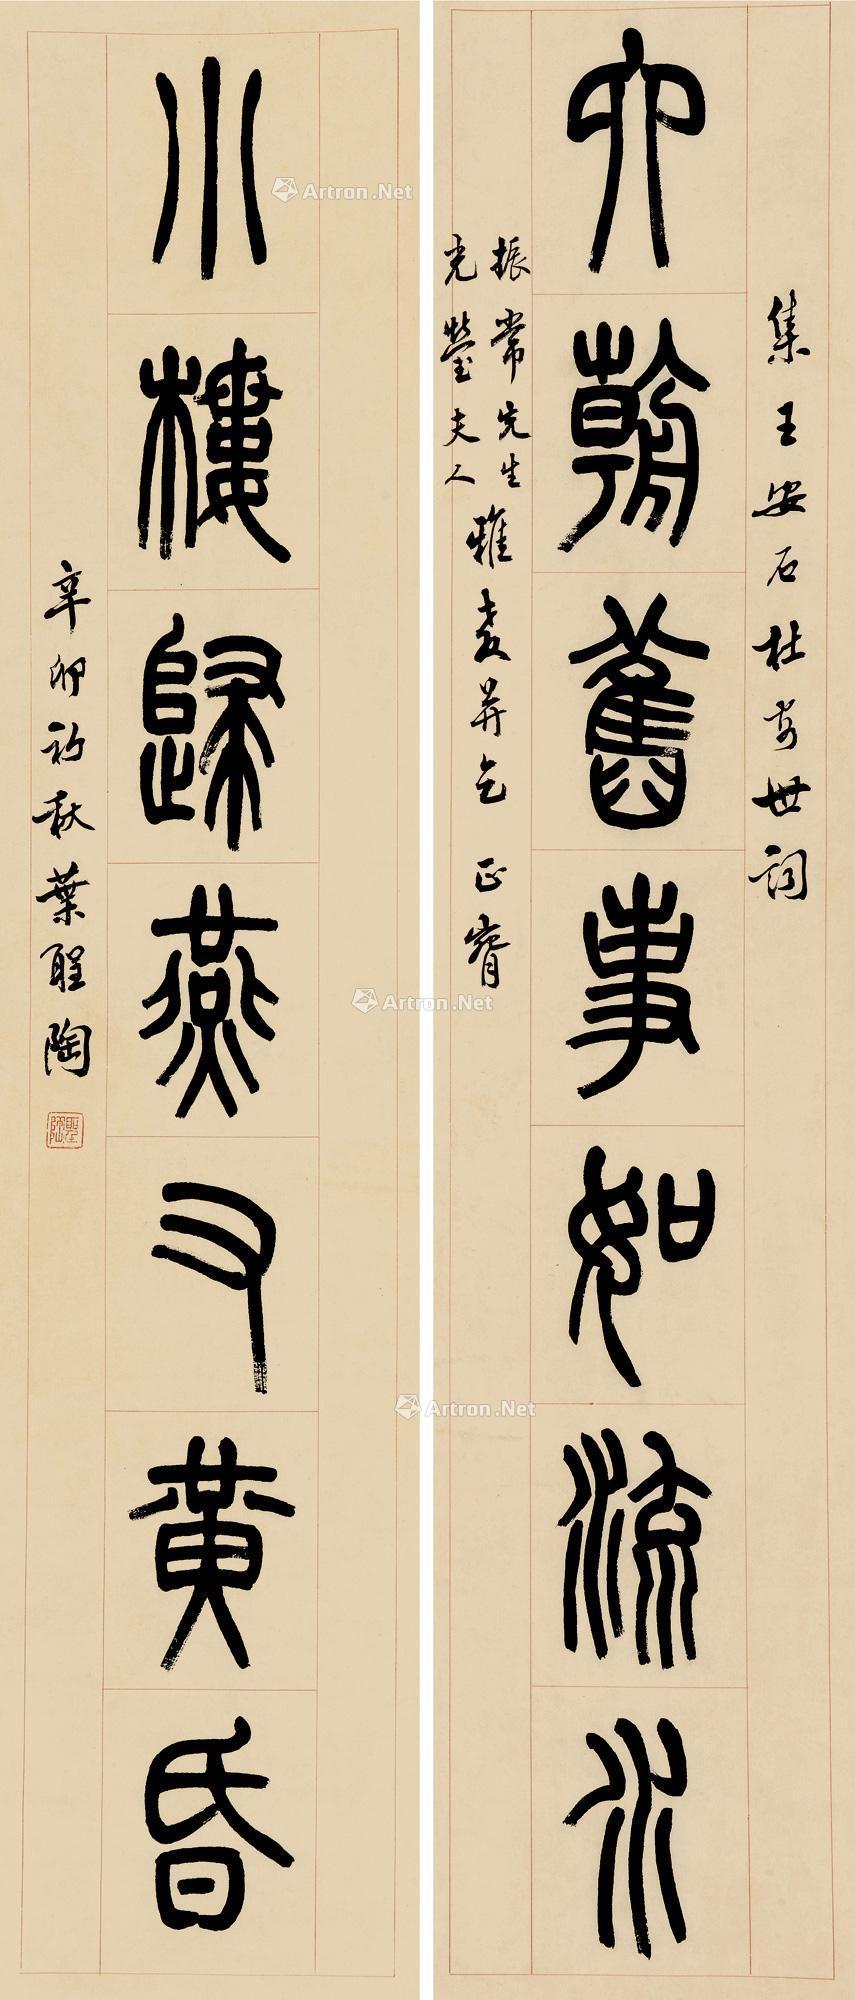 集王安石杜安世詞
六朝舊事如流水
振常先生
光瑩夫人
雅教并乞 正腕
小樓歸燕又黃昏
辛卯初秋葉聖陶
聖陶
Artron.Net
Artron.Net
Artron.Net